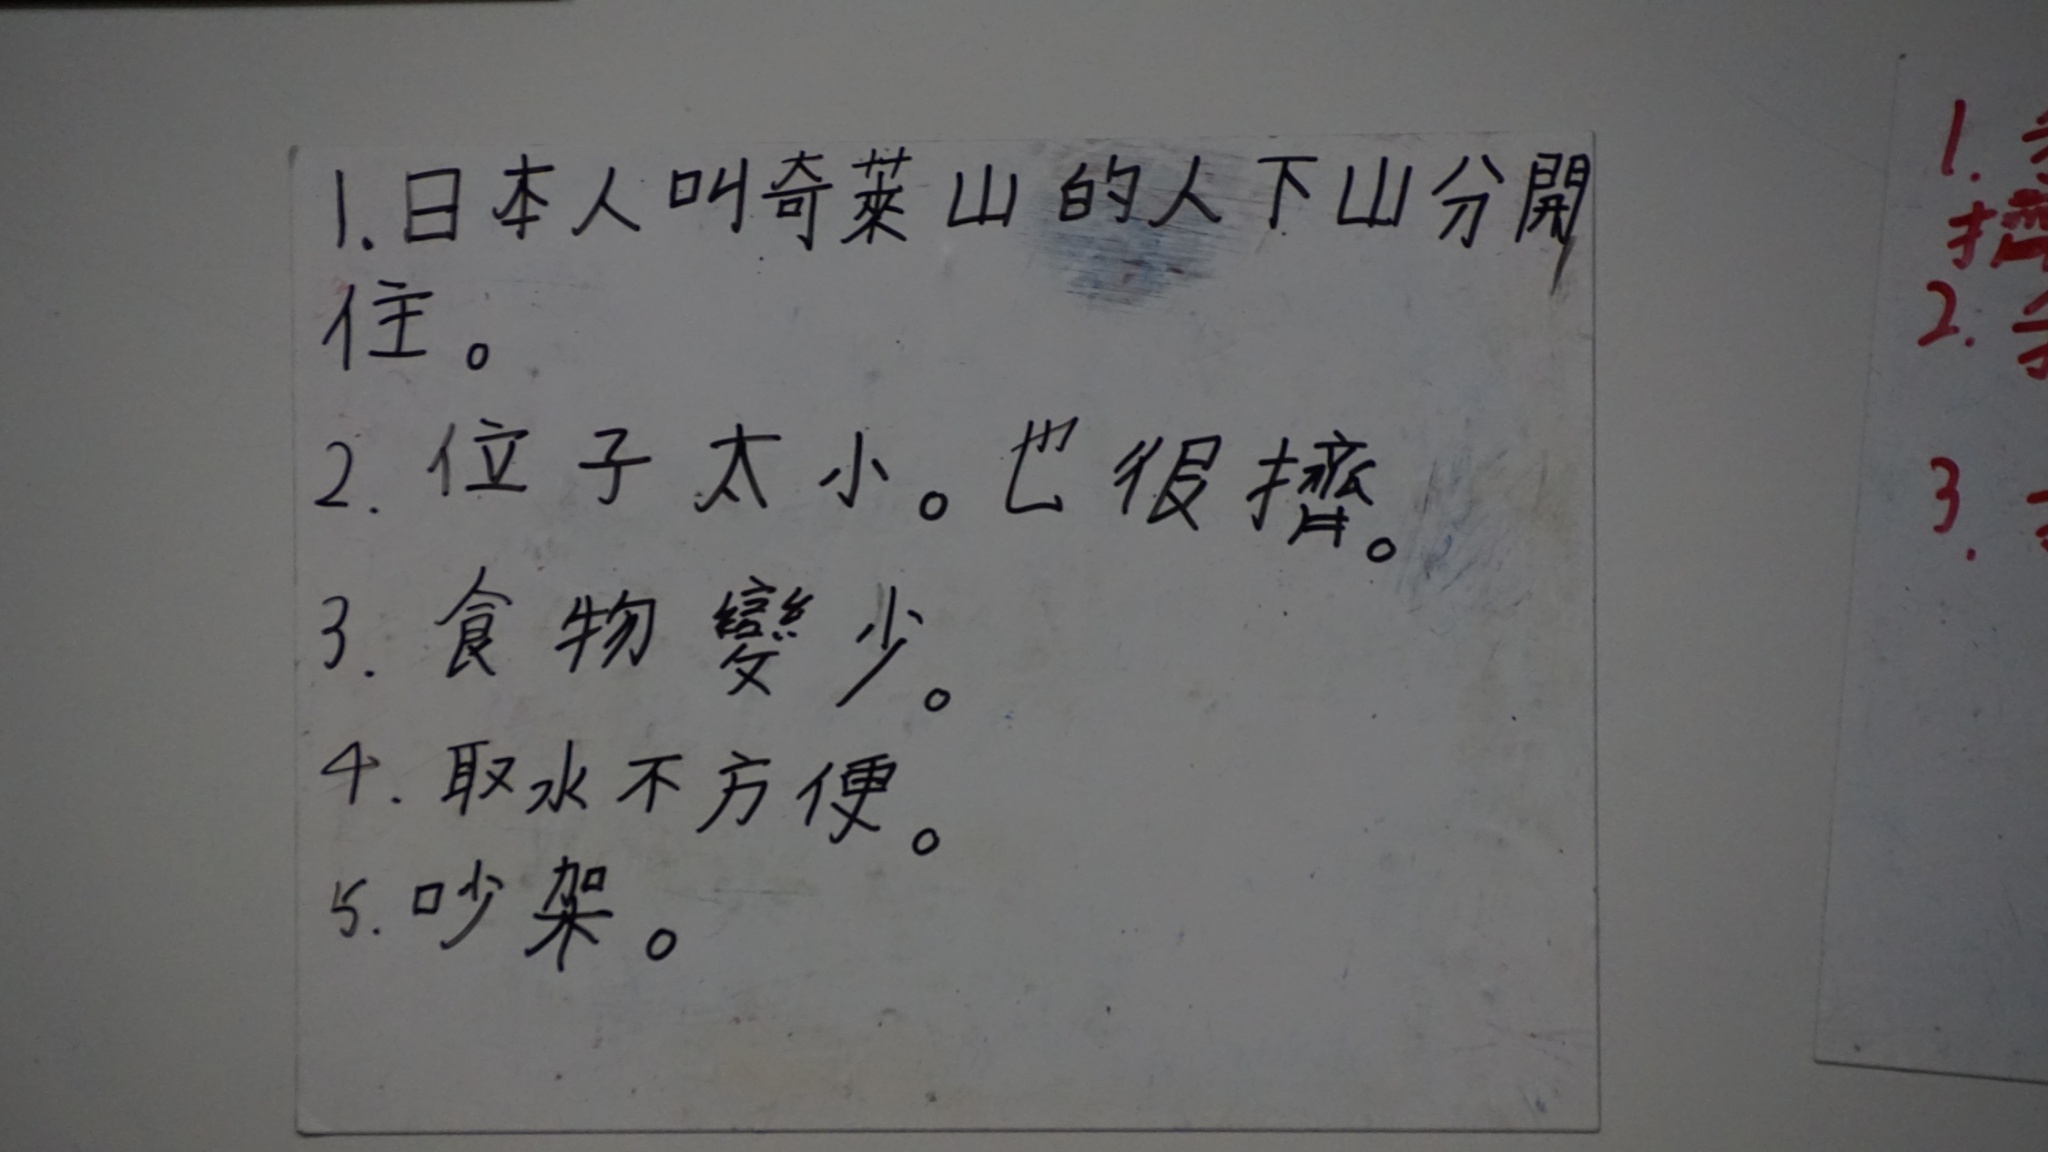 1.日本人叫奇萊山的人下山分開
住。
2.位子太小。也很擠。
3.食物變少。
4.取水不方便。
5.吵架。
1.
擠
2.
3.